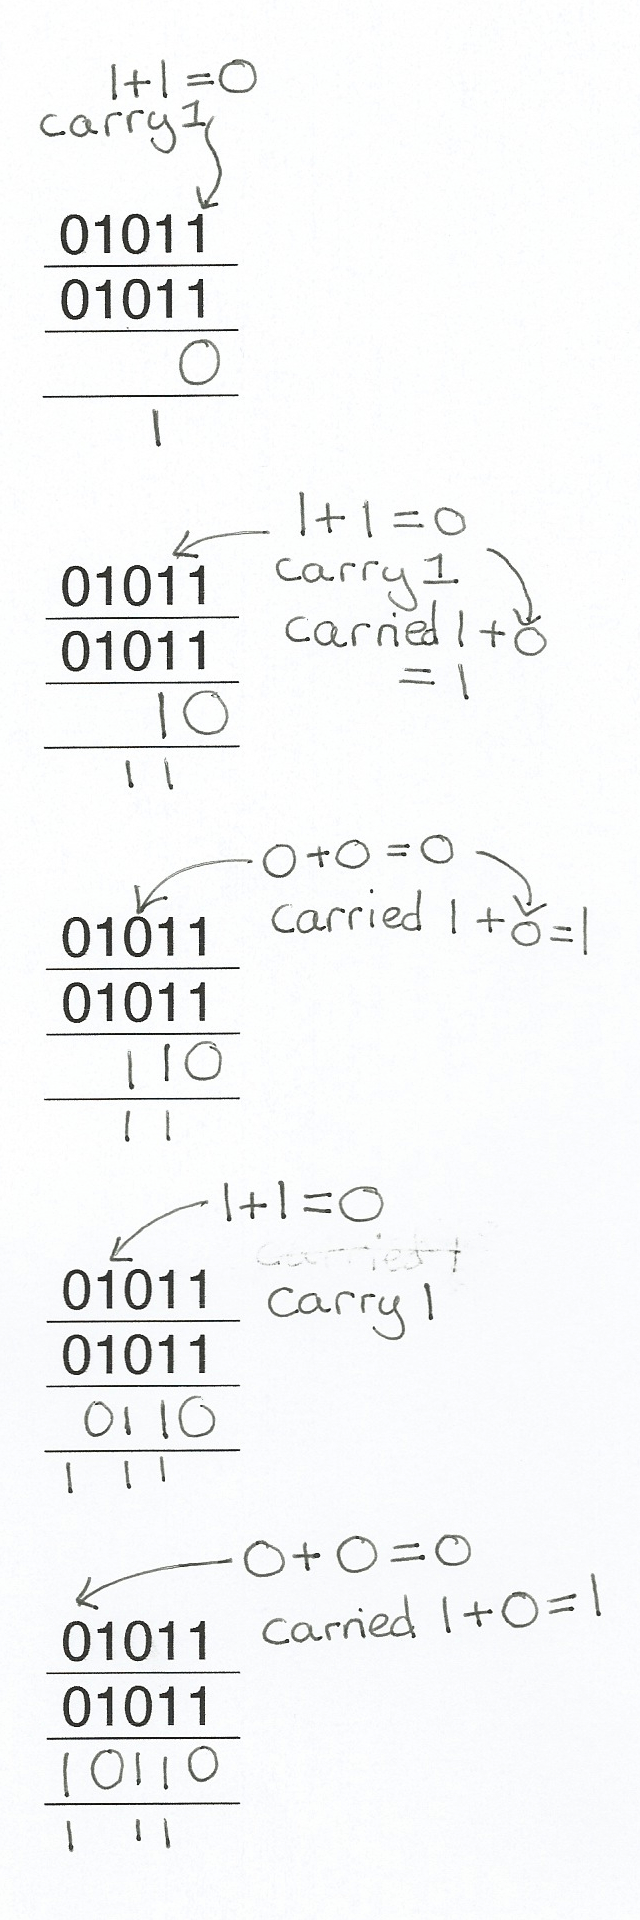 1+1=0
carry 1
01011
01011
0
1
1+1=0
carry 1
carried 1+0
=1
01011
01011
10
1 1
0+0=0
carried 1+0=1
01011
01011
110
1 1
1+1=0
carried 1
carry 1
01011
01011
0110
1 1 1
0+0=0
carried 1+0=1
01011
01011
10110
1 1 1